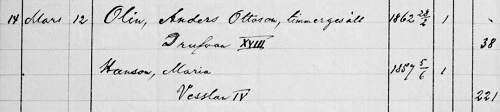 14 Mars 12 Olin, Anders Ottoson, timmergesäll 1862 28/2 1
Drufvan XVIII 38
Hanson, Maria 1857 5/6 1
Vesslan IV 221